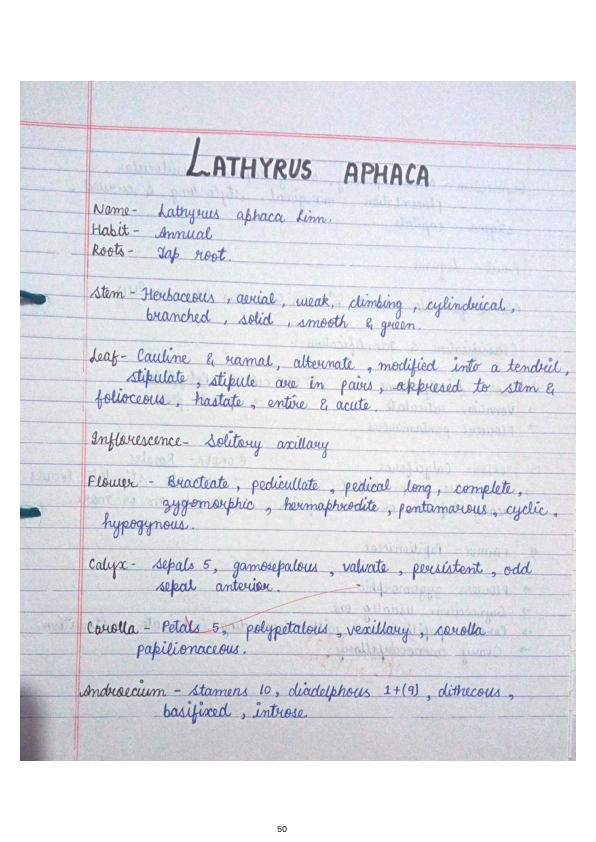 LATHYRUS APHACA
Name- Lathyrus aphaca Linn.
Habit- Annual
Roots- Tap root.
Stem - Herbaceous, aerial, weak, climbing, cylindrical,
branched, solid, smooth & green.
Leaf- Cauline & ramal, alternate, modified into a tendril,
stipulate, stipule are in pairs, appresed to stem &
folioceous, hastate, entire & acute.
Inflorescence- Solitory axillary
Flower - Bracteate, pedicullate, pedical long, complete,
zygomorphic, hermaphrodite, pentamarous, cyclic,
hypogynous.
Calyx- Sepals 5, gamosepalous, valvate, persistent, odd
sepal anterior.
Carolla - Petals 5, polypetalous, vexillary, corolla
papilionaceous.
Androecium - Stamens 10, diadelphous 1+(9), dithecous,
basifixed, introse.
50